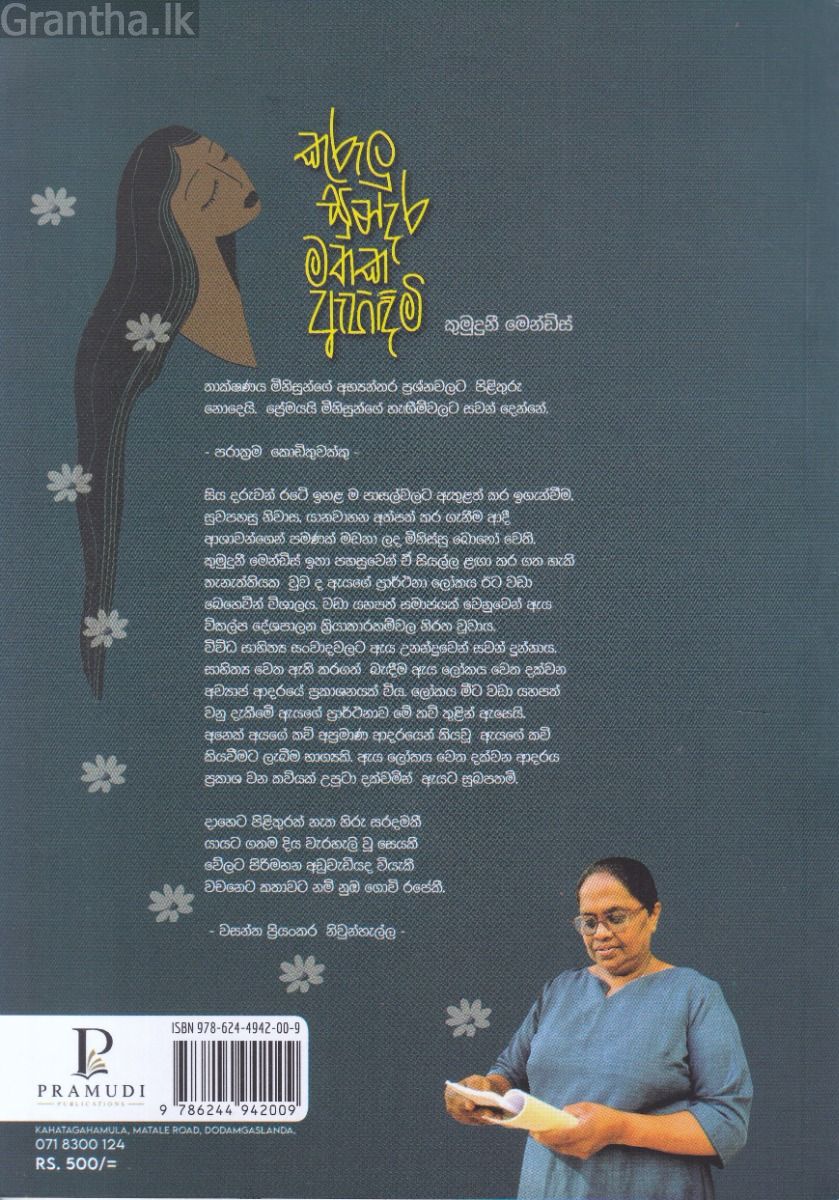 Grantha.lk
කුරුලු
සුන්දර
මගක
ඇහිඳිමි
කුමුදුනී මෙන්ඩිස්
තාක්ෂණය මිනිසුන්ගේ අභ්‍යන්තර ප්‍රශ්නවලට පිළිතුරු
නොදෙයි. ප්‍රේමයයි මිනිසුන්ගේ හැඟීම්වලට සවන් දෙන්නේ.
- පරාක්‍රම කොඩිතුවක්කු -
සිය දරුවන් රටේ ඉහළ ම පාසල්වලට ඇතුළත් කර ඉගැන්වීම,
සුවපහසු නිවාස, යානවාහන අත්පත් කර ගැනීම ආදී
ආශාවන්ගෙන් පමණක් මඩනා ලද මිනිස්සු බොහෝ වෙති.
කුමුදුනී මෙන්ඩිස් ඉතා පහසුවෙන් ඒ සියල්ල ළඟා කර ගත හැකි
තැනැත්තියක වුව ද ඇයගේ ප්‍රාර්ථනා ලෝකය ඊට වඩා
බෙහෙවින් විශාලය. වඩා යහපත් සමාජයක් වෙනුවෙන් ඇය
විකල්ප දේශපාලන ක්‍රියාකාරකම්වල නිරත වූවාය.
විවිධ සාහිත්‍ය සංවාදවලට ඇය උනන්දුවෙන් සවන් දුන්නාය.
සාහිත්‍ය වෙත ඇති කරගත් බැඳීම ඇය ලෝකය වෙත දක්වන
අව්‍යාජ ආදරයේ ප්‍රකාශනයක් විය. ලෝකය මීට වඩා යහපත්
වනු දැකීමේ ඇයගේ ප්‍රාර්ථනාව මේ කවි තුළින් ඇසෙයි.
අනෙක් අයගේ කවි අප්‍රමාණ ආදරයෙන් කියවූ ඇයගේ කවි
කියවීමට ලැබීම භාග්‍යකි. ඇය ලෝකය වෙත දක්වන ආදරය
ප්‍රකාශ වන කවියක් උපුටා දක්වමින් ඇයට සුබපතමි.
දාහෙට පිළිතුරක් නැත හිරු සරදමකී
යායට ගතම දිය වැරහැලි වූ සෙයකී
වේලට පිරිමහන අඩුවැඩියද වියැකී
වචනෙට කතාවට නම් නුඹ ගොවි රජෙකී.
- වසන්ත ප්‍රියංකර නිවුන්හැල්ල -
ISBN 978-624-4942-00-9
9 786244 942009
P
PRAMUDI
PUBLICATIONS
KAHATAGAHAMULA, MATALE ROAD, DODAMGASLANDA.
071 8300 124
RS. 500/=